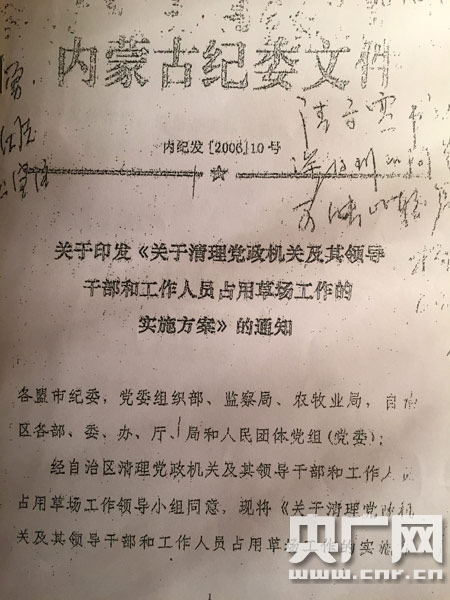 内蒙古纪委文件
内纪发〔2006〕10号
关于印发《关于清理党政机关及其领导
干部和工作人员占用草场工作的
实施方案》的通知
各盟市纪委，党委组织部、监察局、农牧业局，自治
区各部、委、办、厅、局和人民团体党组(党委)：
经自治区清理党政机关及其领导干部和工作人
占用草场工作领导小组同意，现将《关于清理党政机
关及其领导干部和工作人员占用草场工作的实施
央广网
www.cnr.cn